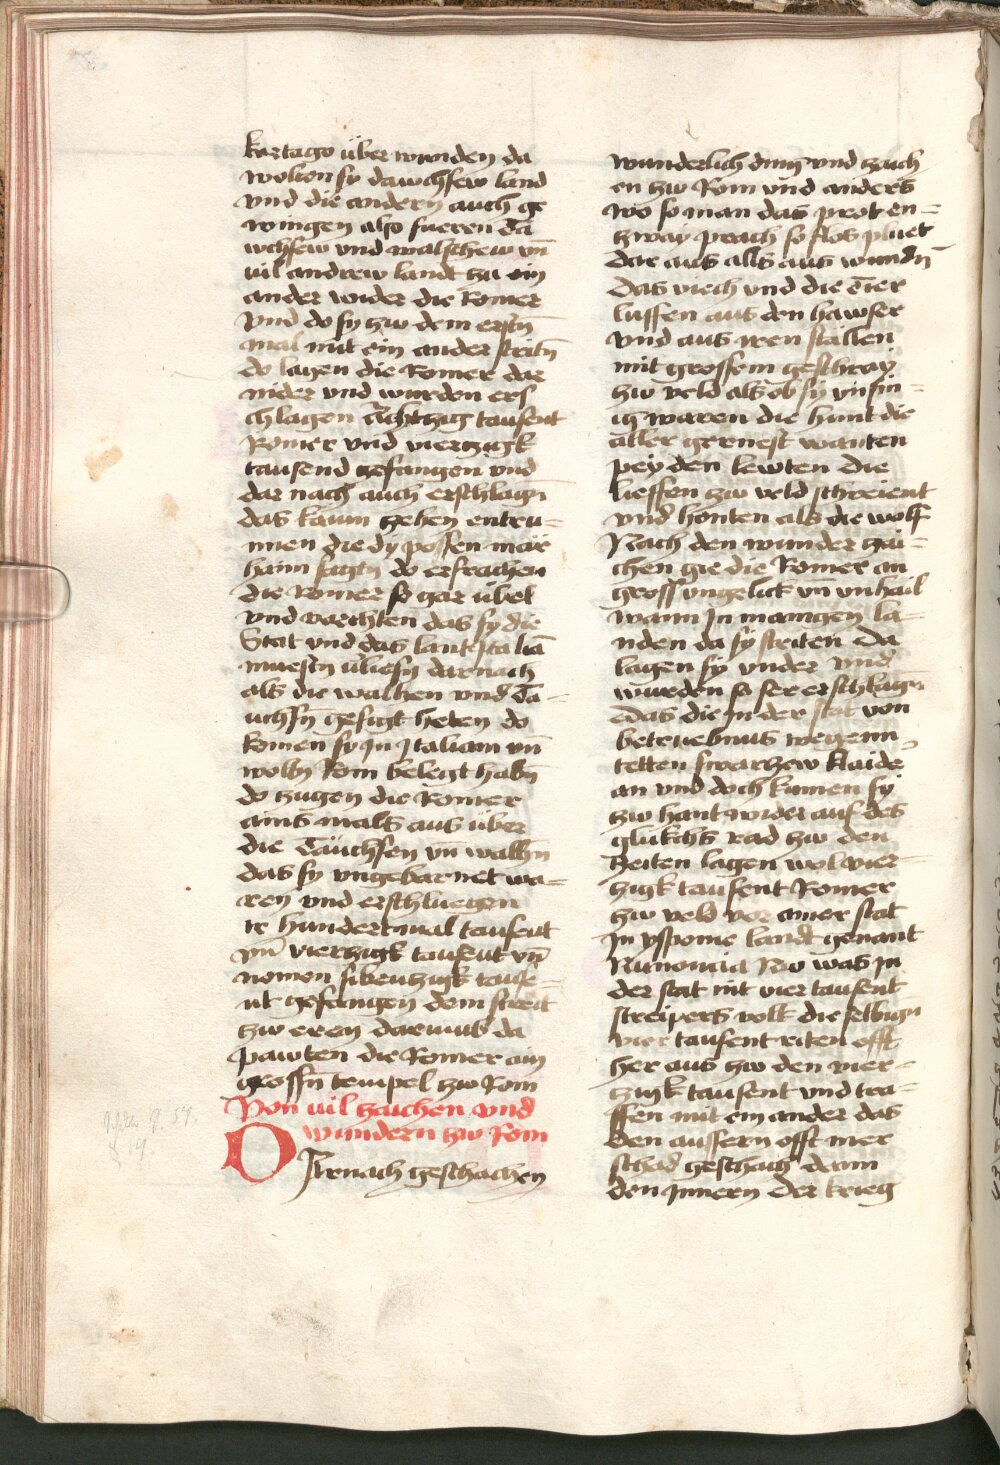 kartago über wunden da
wolten sy dawchsew land
vnd die andern auch ge
wingen also fueren Da
wchsew vnd walschew vn̄
vil andrew landt zu ein
ander wider die Romer
vnd do sy zw dem erstn̄
mal mit ein ander stritn̄
do lagen die Romer dar
nider vnd wurden ers
chlagen Achtzig tausent
Romer vnd vierzigk
tausend gefangen vnd
dar nach auch erschlagn̄
das kaum zehen entru=
nnen die dy possen mär
haim sagtn do erschraken
die Romer so gar übel
vnd vorchten das sy die
Stat vnd das lant ytaliā
muestn̄ vliesn̄ darnach
als die walhen vnd Da=
uchsn̄ gesigt heten do
komen sy in Italiam vn̄
woltn̄ Rom belegt habn̄
do zugen die Romer
ains mals aus über
die Däuchsen vn̄ walhn̄
das sy vngebarnet wa=
ren vnd erschluegen
ir hundert mal tausent
vn̄ vierzigk tausent vn̄
nomen sibenzigk tause=
nt gefangen dem streit
zw eren darumb da
pawten die Romer ain
grossn̄ tempel zw Rom
Von vil zaichen vnd
wundern zw Rom
Darnach geschachen
wunderlich ding vnd zaich
en zw Rom vnd anders
wo so man das prot en=
zway prach so flos pluet
dar aus alls aus wundn̄
das viech vnd die Tier
luffen aus den hawser
vnd aus iren stallen
mit grossem geschray
zw veld als ob sy vnsin=
ig waren die hunt die
aller gernest wanten
pey den lewten die
lieffen zw veld schreient
vnd honten als die wolf
Nach den wunder zai=
chen gie die Romer an
gross vngelick vn̄ vnhail
wann In manigen la=
nden da sy striten da
lagen sy vnder vnd
wurden so ser erschlagn̄
das die in der stat von
betruebnus wegenn
tetten swarzew klaider
an vnd doch kumen sy
zw hant wider auf des
glukchs rad zw den
Zeiten lagen wol vier=
zigk tausent Romer
zw veld vor ainer stat
In yspome landt genant
Numoncia Nw was in
der stat nit vier tausent
streipers volk die selbign̄
vier tausent riten offt
her aus zw den vier=
zigk tausent vnd tra=
ffen mit ein ander das
den aussern offt mer
schad geschach dann
den Innern der krieg